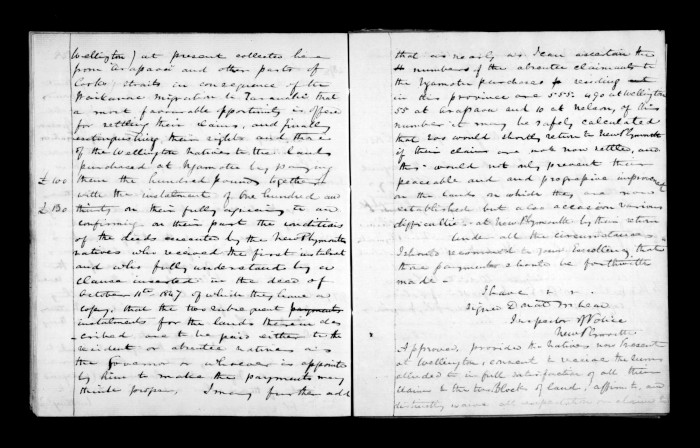 Wellington) at present collected here
from Arapaoa and other parts of
Cooks straits in consequence of the
migration to Taranaki that
a more favourable opportunity is
for settling their claims, and finally
extinguishing their rights and those
of the Wellington natives to the lands
purchased at by paying
£100 them the hundred pounds together
with the instalment of One hundred and
£130 thirty on their fully agreeing to and
confirming on their part the conditions
of the deeds executed by the New Plymouth
natives who received the first instalment
and who fully understand by a
clause inserted in the deed of
October 11th 1847 of which they have a
copy, that the two subsequent payments
instalments for the lands therein des
cribed are to be paid either to the
resident or absentee natives as
the Governor or whoever is appointed
by him to make the payments may
think proper. I may further add
that as nearly as I can ascertain the
numbers of the absentee claimants to
the purchases residing
in this province are 555. 490 at Wellington
55 at Arapaoa and 10 at Nelson, of this
number it may be safely calculated
that 200 would shortly return to New Plymouth
if their claims are not now settled, and
this would not only prevent their
peaceable and progressive
on the lands on which they are now
established but also occasion various
difficulties at New Plymouth by their return
Under all the circumstances
I should recommend to your Excellency that
these payments should be forthwith
made -
I have
Signed
Inspector of Police
New Plymouth
Approved, provided the natives now present
at Wellington, consent to receive the sums
alluded to in full satisfaction of all their
claims to the two Blocks of land, and
distinctly waive all expectation or claims to